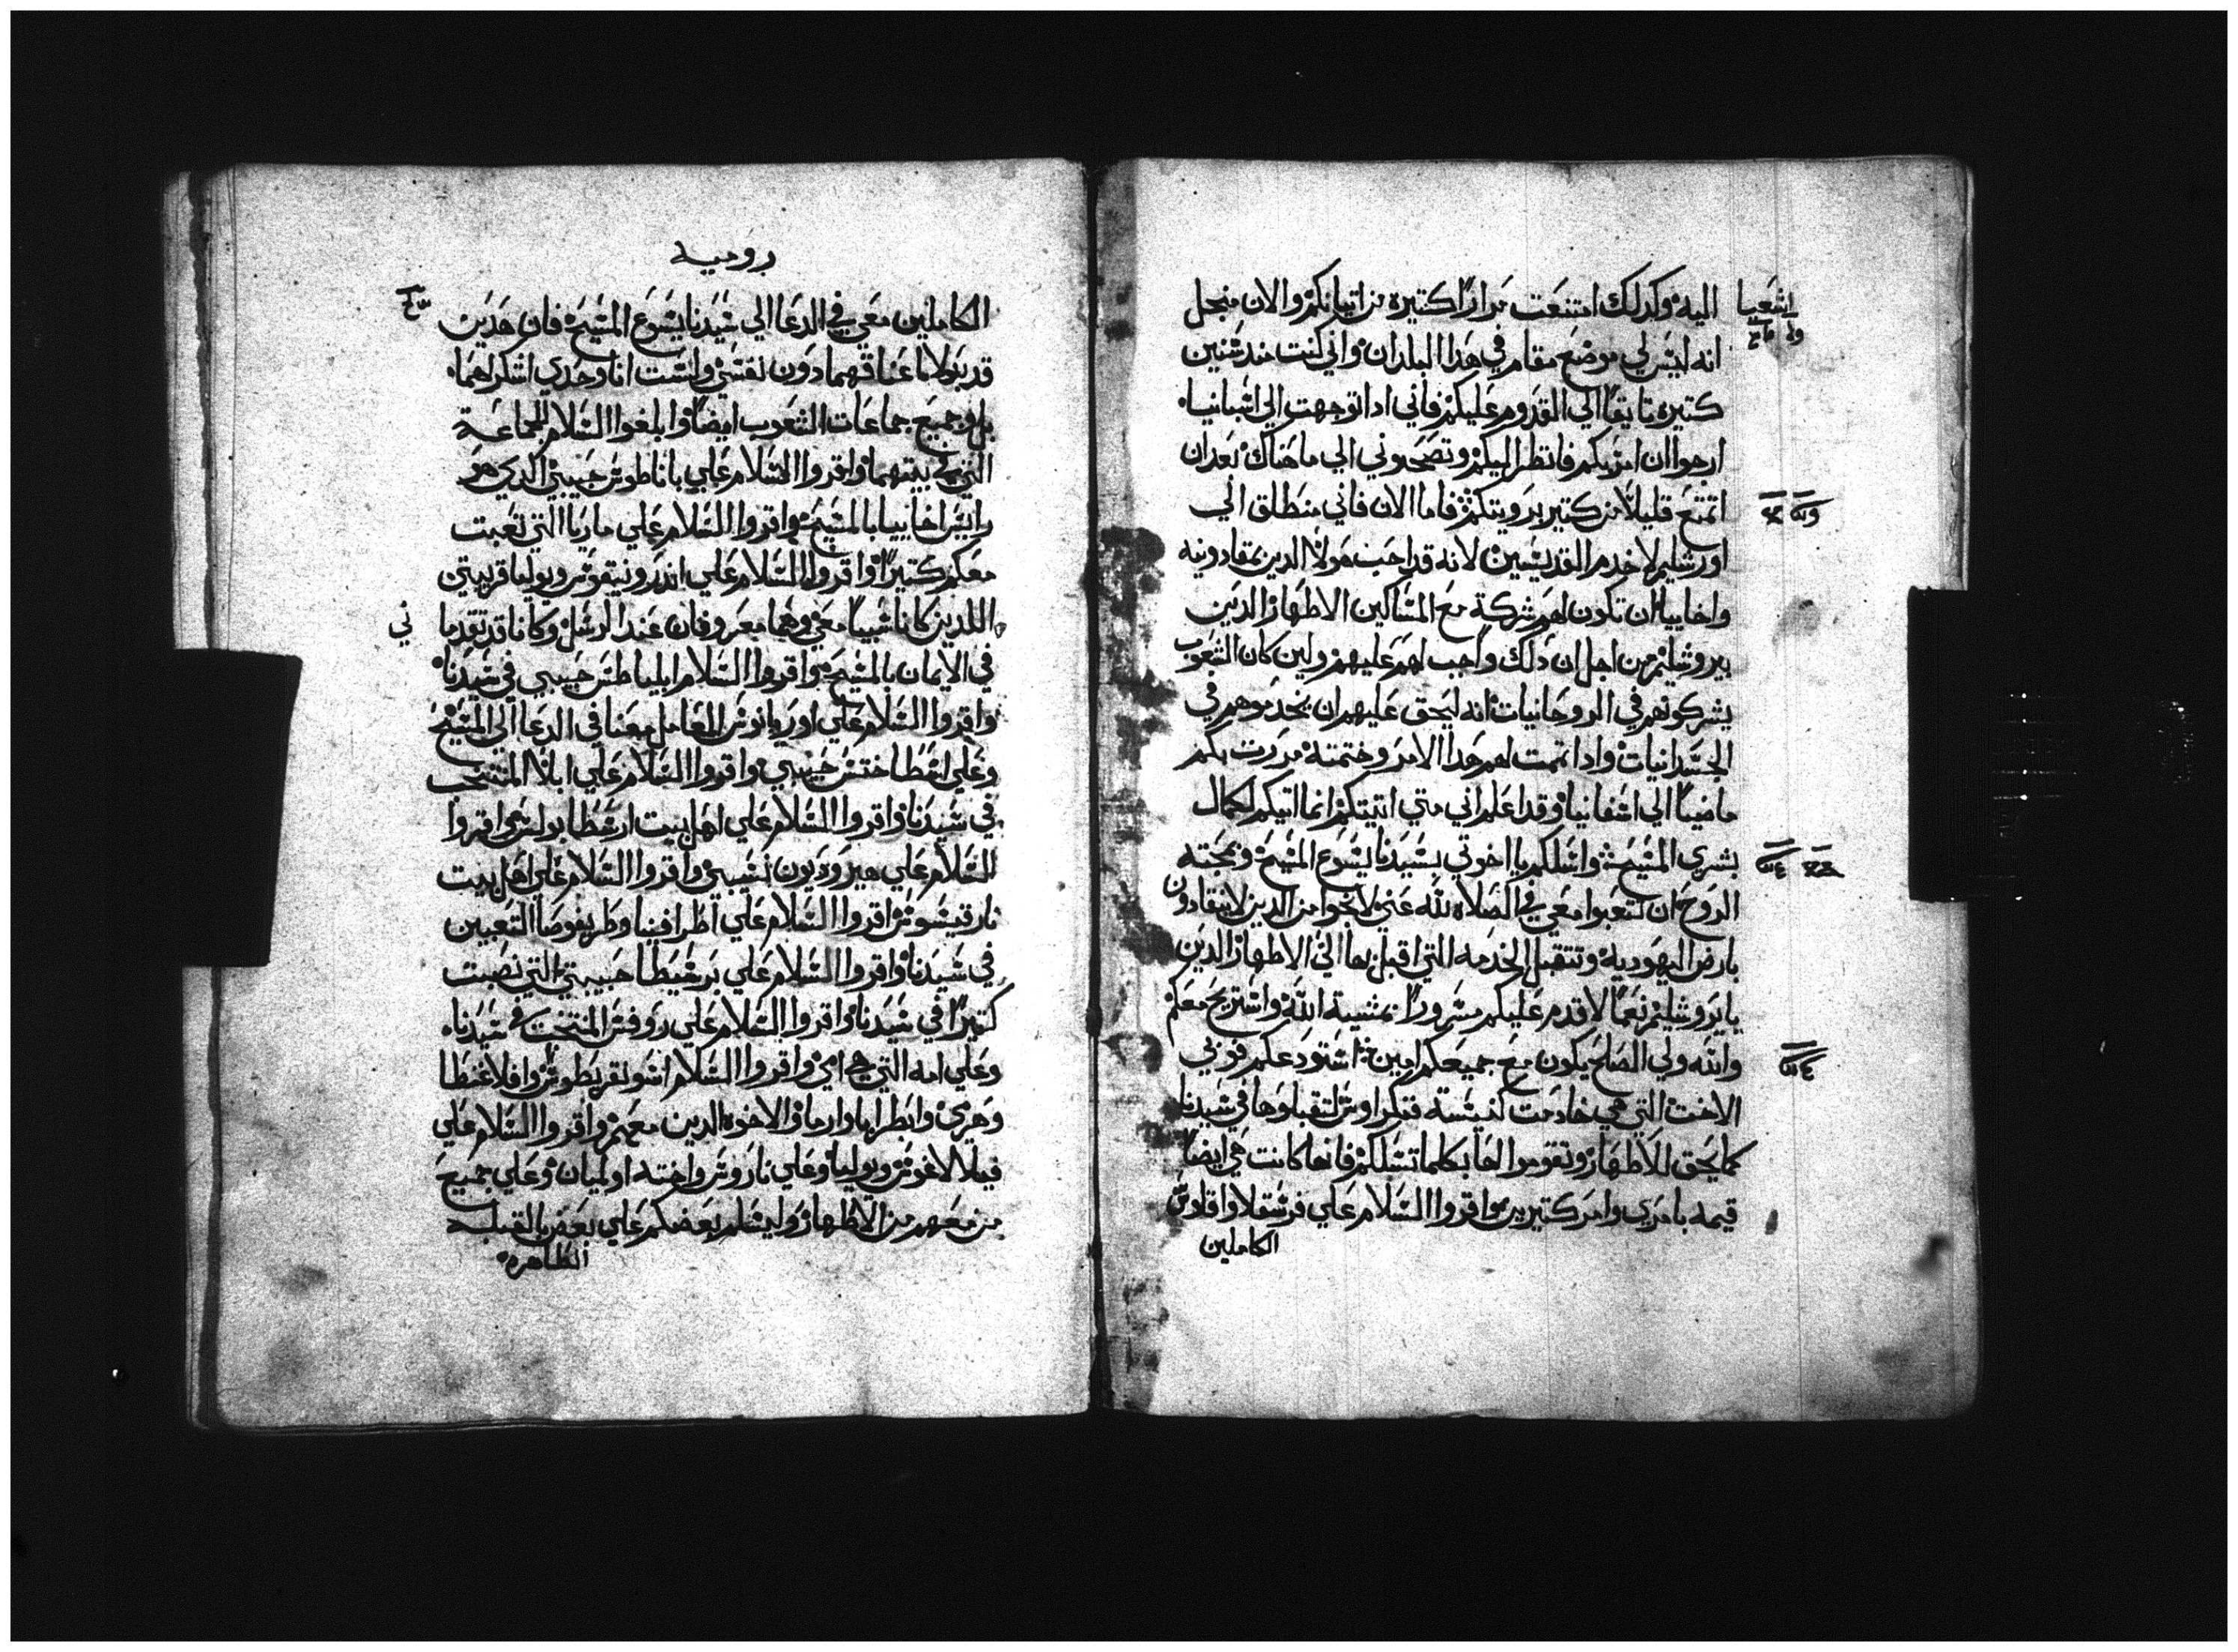 اشعيا
اليه وكدلك امتنعت مرارا كتيره من اتيانكم والان منجل
انه ليس لي موضع مقام في هدا البلدان واني كنت مند سنين
كتيره تايقا الي القدوم عليكم فاني ادا توجهت الي اسبانيا
ارجوا ان امر بكم فانظر اليكم وتصحبوني الي ما هناك بعد ان
اتمتع قليلا من كتير برويتكم فاما الان فاني منطلق الي
اورشليم لاخدم القديسين لانه قد احب هولا الدين بمقادونيه
واخاييا ان تكون لهم شركة مع المساكين الاطهار الدين
بيروشليم من اجل ان دلك واجب لهم عليهم ولين كان الشعوب
يشركونهم في الروحانيات انه ليحق عليهم ان يخدموهم في
الجسدانيات وادا تممت لهم هدا الامر وختمته مررت بكم
ماضيا الي اسفانيا وقد اعلم اني متي اتيتكم انما اتيكم لكمال
بشري المسيح واسلكم يا اخوتي بسيدنا يسوع المسيح وبمحبته
الروح ان تتعبوا معي في الصلاه لله عني لانجوا من الدين لاينقادون
بارض اليهودية وتتقبل الخدمه التي اقبل بها الي الاطهار الدين
بايروشليم نعما لاقدم عليكم مسرورا بمشية الله واستريح معكم
والله ولي الصلح يكون مع جميعكم امين استودعكم فوبني
الاخت التي هي خادمت كنيسة قنكراوس لتقبلوها في سيدنا
كما يحق للاطهار وتقوموا لها بكلما تسلكم فانها كانت هي ايضا
قيمه بامري وامر كتيرين واقروا السلام علي فرسقلا واقلاوس
الكاملين
روميه
الكاملين معي في الدعا الي سيدنا يسوع المسيح فان هدين
قد بدلا اعناقهما دون نفسي ولست انا وحدي اشكرلهما
بل وجميع جماعات الشعوب ايضا وابلغوا السلام للجماعة
التي في بيتهما واقروا السلام علي باناطوس حبيبي الدي هو
رايس اخاييا بالمسيح واقروا السلام علي ماريا التي تعبت
معكم كتيرا واقروا السلام علي اندرونيقوس ويوليا قريبتي
اللدين كانا سبيا معي وهما معروفان عند الرسل وكانا قد تقدما ني
في الايمان بالمسيح واقروا السلام ابلياطس حبيبي في سيدنا
واقروا السلام علي اوريانوس العامل معنا في الدعا الي المسيح
وعلي اسطاختس حبيبي واقروا السلام علي ابلا المنتخب
في سيدنا واقروا السلام علي اهل بيت ارسطابولس واقروا
السلام علي هيروديون نسيبي واقروا السلام علي اهل بيت
نارقيسوس اقروا السلام علي اطرافينا وطريفوصا التعبين
في سيدنا واقروا السلام علي برسيطا حبيبتي التي نصبت
كتيرا في سيدنا واقروا السلام علي روفس المنتخب في سيدنا
وعلي امه التي هي امي واقروا السلام اسونقريطوس وافلاغنطا
وهرمي وانطرابا وارما والاخوه الدين معهم واقروا السلام علي
فيلالاغوس ويوليا وعلي ناروس واخته اولميان وعلي جميع
من معهم من الاطهار وليسلم بعضكم علي بعض بالقبله
الطاهره